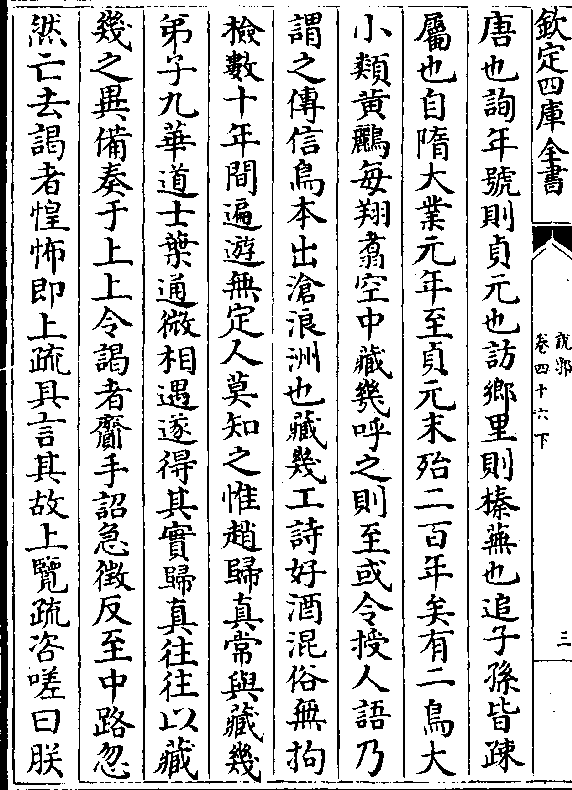 欽定四庫全書
說郛
卷四十六下
三
唐也詢年號則貞元也訪鄉里則榛蕪也追子孫皆疎
屬也自隋大業元年至貞元末殆二百年矣有二鳥大
小類黃鸝每翔翥空中藏幾呼之則至或令授人語乃
謂之傳信鳥本出滄浪洲也藏幾工詩好酒混俗無拘
檢數十年間遍遊無定人莫知之惟趙歸真常與藏幾
弟子九華道士葉通微相遇遂得其實歸真往往以藏
幾之異備奏于上上令謁者齎手詔急徵反至中路忽
然亡去謁者惶怖即上疏具言其故上覽疏咨嗟曰朕